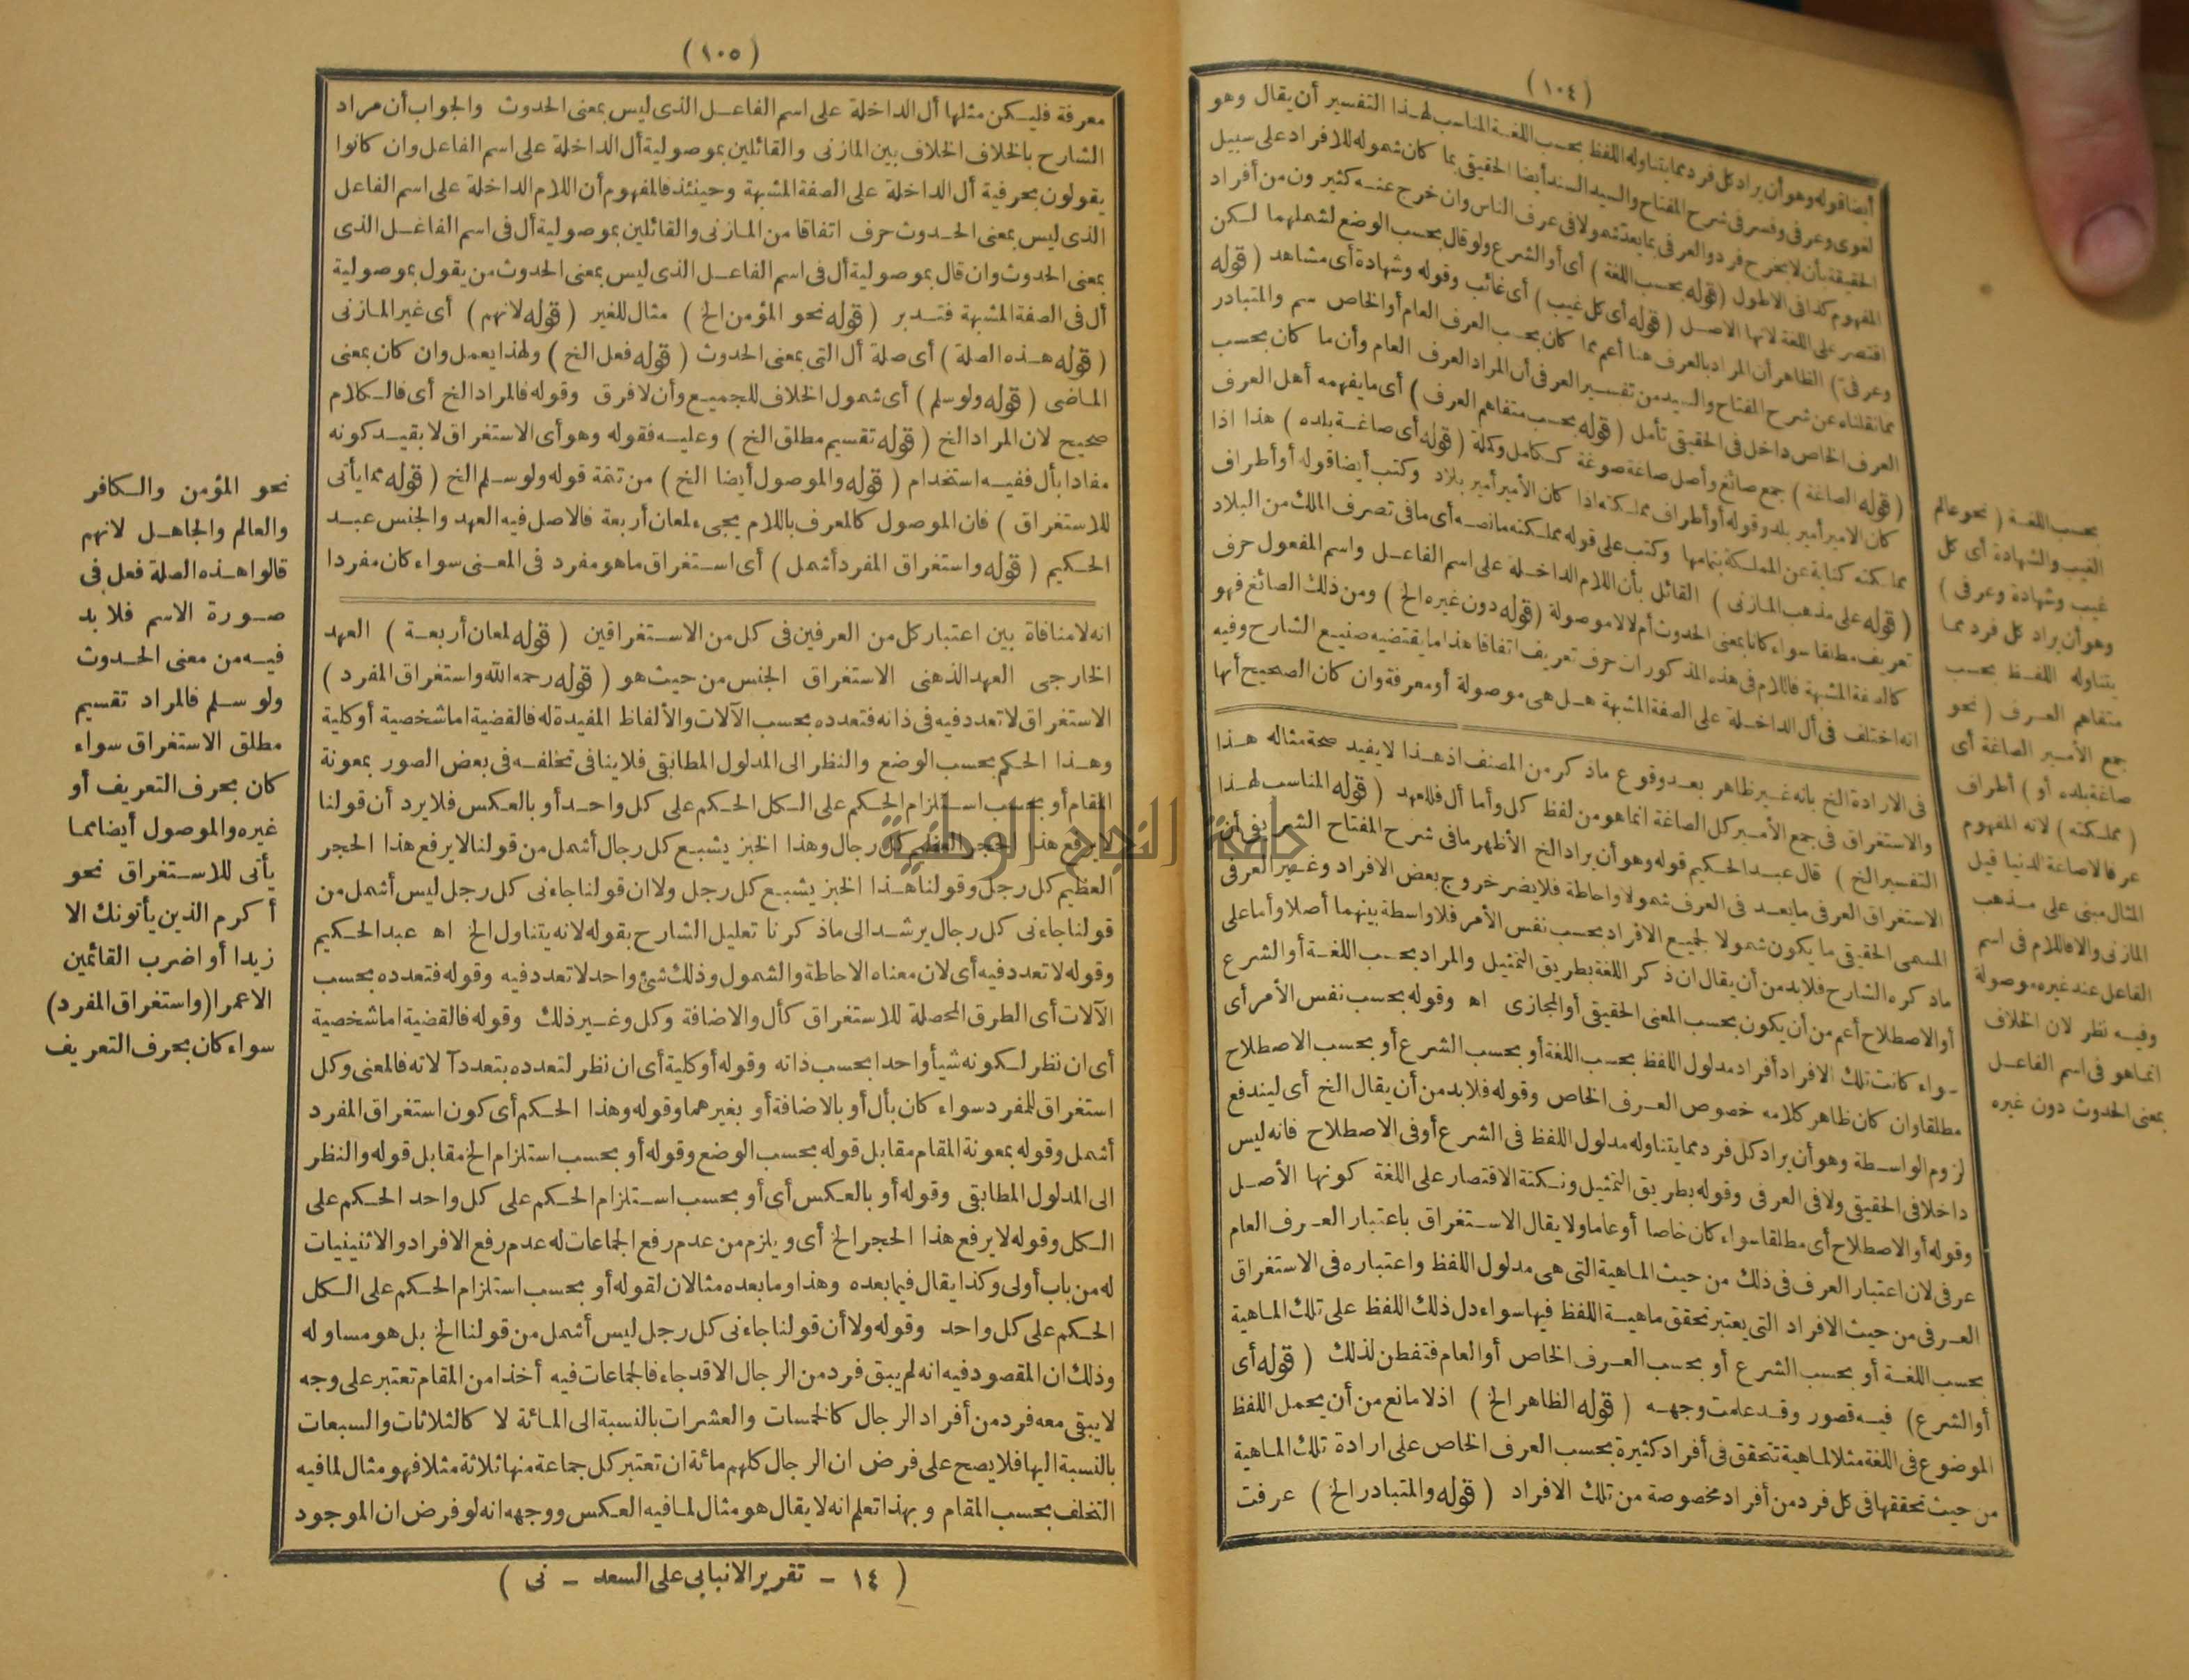 (١٠٤)
أيضا قوله وهو أن يراد كل فرد مما يتناوله اللفظ بحسب اللغة المناسب لهذا التفسير أن يقال وهو
لغوى وعرفى وفسر فى شرح المفتاح والسيد السند أيضا الحقيقى بما كان شموله للافراد على سبيل
الحقيقة بأن لا يخرج فرد والعرفى بما يعد شمولا فى عرف الناس وان خرج عنه كثيرون من أفراد
المفهوم كذا فى الاطول (قوله بحسب اللغة) أى أو الشرع ولو قال بحسب الوضع لشملهما لكن
اقتصر على اللغة لانها الاصل (قوله أى كل غيب) أى غائب وقوله وشهادة أى مشاهد (قوله
وعرفى) الظاهر أن المراد بالعرف هنا أعم مما كان بحسب العرف العام أو الخاص سم والمتبادر
مما نقلناه عن شرح المفتاح والسيد من تفسير العرفى أن المراد العرف العام وأن ما كان بحسب
العرف الخاص داخل فى الحقيقى تأمل (قوله بحسب متفاهم العرف) أى ما يفهمه أهل العرف
(قوله الصاغة) جمع صائغ وأصل صاغة صوغة ككامل وكملة (قوله أى صاغة بلده) هذا اذا
كان الامير أمير بلد وقوله أو أطراف مملكته اذا كان الأمير أمير بلاد وكتب أيضا قوله أو أطراف
مملكته كناية عن المملكة بتمامها وكتب على قوله مملكته مانصه أى ما فى تصرف الملك من البلاد
(قوله على مذهب المازنى) القائل بأن اللام الداخلة على اسم الفاعل واسم المفعول حرف
تعريف مطلقا سواء كانا بمعنى الحدوث أم لا لاموصولة (قوله دون غيره الخ) ومن ذلك الصائغ فهو
كالصفة المشبهة فاللام فى هذه المذكوران حرف تعريف اتفاقا هذا ما يقتضيه صنيع الشارح وفيه
انه اختلف فى أل الداخلة على الصفة المشبهة هل هى موصولة أو معرفة وان كان الصحيح أنها
فى الارادة الخ بانه غير ظاهر بعد وقوع ماذكر من المصنف اذ هذا لا يفيد صحة مثاله هذا
والاستغراق فى جمع الأمير كل الصاغة انما هو من لفظ كل وأما أل فللعهد (قوله المناسب لهذا
التفسير الخ) قال عبد الحكيم قوله وهو أن يراد الخ الأظهر ما فى شرح المفتاح الشريفى أن
الاستغراق العرفى ما يعد فى العرف شمولا واحاطة فلا يضر خروج بعض الافراد وغير العرفى
المسمى الحقيقى ما يكون شمولا لجميع الافراد بحسب نفس الأمر فلا واسطة بينهما أصلا وأما على
ماذكره الشارح فلابد من أن يقال ان ذكر اللغة بطريق التمثيل والمراد بحسب اللغة أو الشرع
أو الاصطلاح أعم من أن يكون بحسب المعنى الحقيقى أو المجازى اه وقوله بحسب نفس الأمر أى
سواء كانت تلك الافراد أفراد مدلول اللفظ بحسب اللغة أو بحسب الشرع أو بحسب الاصطلاح
مطلقا وان كان ظاهر كلامه خصوص العرف الخاص وقوله فلابد من أن يقال الخ أى ليندفع
لزوم الواسطة وهو أن يراد كل فرد مما يتناوله مدلول اللفظ فى الشرع أو فى الاصطلاح فانه ليس
داخلا فى الحقيقى ولا فى العرفى وقوله بطريق التمثيل ونكتة الاقتصار على اللغة كونها الأصل
وقوله أو الاصطلاح أى مطلقا سواء كان خاصا أو عاما ولا يقال الاستغراق باعتبار العرف العام
عرفى لان اعتبار العرف فى ذلك من حيث الماهية التى هى مدلول اللفظ واعتباره فى الاستغراق
العرفى من حيث الافراد التى يعتبر تحقق ماهية اللفظ فيها سواء دل ذلك اللفظ على تلك الماهية
بحسب اللغة أو بحسب الشرع أو بحسب العرف الخاص أو العام فتفطن لذلك (قوله أى
أو الشرع) فيه قصور وقد علمت وجهه (قوله الظاهر الخ) اذلا مانع من أن يحمل اللفظ
الموضوع فى اللغة مثلا لماهية تتحقق فى أفراد كثيرة بحسب العرف الخاص على ارادة تلك الماهية
من حيث تحققها فى كل فرد من أفراد مخصوصة من تلك الافراد (قوله والمتبادر الخ) عرفت
بحسب اللغة (نحو عالم
الغيب والشهادة أى كل
غيب وشهادة وعرفى)
وهو أن يراد كل فرد مما
يتناوله اللفظ بحسب
متفاهم العرف (نحو
جمع الأمير الصاغة أى
صاغة بلده أو) أطراف
(مملكته) لانه المفهوم
عرفا لاصاغة الدنيا قيل
المثال مبنى على مذهب
المازنى والا فاللام فى اسم
الفاعل عند غيره موصولة
وفيه نظر لان الخلاف
انما هو فى اسم الفاعل
بمعنى الحدوث دون غيره
(١٠٥)
معرفة فليكن مثلها أل الداخلة على اسم الفاعل الذى ليس بمعنى الحدوث والجواب أن مراد
الشارح بالخلاف الخلاف بين المازنى والقائلين بموصولية أل الداخلة على اسم الفاعل وان كانوا
يقولون بحرفية أل الداخلة على الصفة المشبهة وحينئذ فالمفهوم أن اللام الداخلة على اسم الفاعل
الذى ليس بمعنى الحدوث حرف اتفاقا من المازنى والقائلين بموصولية أل فى اسم الفاعل الذى
بمعنى الحدوث وان قال بموصولية أل فى اسم الفاعل الذى ليس بمعنى الحدوث من يقول بموصولية
أل فى الصفة المشبهة فتدبر (قوله نحو المؤمن الخ) مثال للغير (قوله لانهم) أى غير المازنى
(قوله هذه الصلة) أى صلة أل التى بمعنى الحدوث (قوله فعل الخ) ولهذا يعمل وان كان بمعنى
الماضى (قوله ولو سلم) أى شمول الخلاف للجميع وأن لا فرق وقوله فالمراد الخ أى فالكلام
صحيح لان المراد الخ (قوله تقسيم مطلق الخ) وعليه فقوله وهو أى الاستغراق لا بقيد كونه
مفادا بأل ففيه استخدام (قوله والموصول أيضا الخ) من تتمة قوله ولو سلم الخ (قوله مما يأتى
للاستغراق) فان الموصول كالمعرف باللام يجىء لمعان أربعة فالاصل فيه العهد والجنس عبد
الحكيم (قوله واستغراق المفرد أشمل) أى استغراق ماهو مفرد فى المعنى سواء كان مفردا
انه لا منافاة بين اعتبار كل من العرفين فى كل من الاستغراقين (قوله لمعان أربعة) العهد
الخارجى العهد الذهنى الاستغراق الجنس من حيث هو (قوله رحمه الله واستغراق المفرد)
الاستغراق لا تعدد فيه فى ذاته فتعدده بحسب الآلات والألفاظ المفيدة له فالقضية اما شخصية أو كلية
وهذا الحكم بحسب الوضع والنظر الى المدلول المطابقى فلا ينافى تخلفه فى بعض الصور بمعونة
المقام أو بحسب استلزام الحكم على الكل الحكم على كل واحد أو بالعكس فلا يرد أن قولنا
لا يرفع هذا الحجر العظيم كل رجال وهذا الخبز يشبع كل رجال أشمل من قولنا لا يرفع هذا الحجر
العظيم كل رجل وقولنا هذا الخبز يشبع كل رجل ولا ان قولنا جاءنى كل رجل ليس أشمل من
قولنا جاءنى كل رجال يرشد الى ماذكرنا تعليل الشارح بقوله لانه يتناول الخ اه عبد الحكيم
وقوله لا تعدد فيه أى لان معناه الاحاطة والشمول وذلك شئ واحد لا تعدد فيه وقوله فتعدده بحسب
الآلات أى الطرق المحصلة للاستغراق كأل والاضافة وكل وغير ذلك وقوله فالقضية اما شخصية
أى ان نظر لكونه شيأ واحدا بحسب ذاته وقوله أو كلية أى ان نظر لتعدده بتعدد آلاته فالمعنى وكل
استغراق للمفرد سواء كان بأل أو بالاضافة أو بغيرهما وقوله وهذا الحكم أى كون استغراق المفرد
أشمل وقوله بمعونة المقام مقابل قوله بحسب الوضع وقوله أو بحسب استلزام الخ مقابل قوله والنظر
الى المدلول المطابقى وقوله أو بالعكس أى أو بحسب استلزام الحكم على كل واحد الحكم على
الكل وقوله لا يرفع هذا الحجر الخ أى ويلزم من عدم رفع الجماعات له عدم رفع الافراد والاثنينيات
له من باب أولى وكذا يقال فيما بعده وهذا وما بعده مثالان لقوله أو بحسب استلزام الحكم على الكل
الحكم على كل واحد وقوله ولا أن قولنا جاءنى كل رجل ليس أشمل من قولنا الخ بل هو مساو له
وذلك ان المقصود فيه انه لم يبق فرد من الرجال الا قد جاء فالجماعات فيه أخذا من المقام تعتبر على وجه
لا يبقى معه فرد من أفراد الرجال كالخمسات والعشرات بالنسبة الى المائة لا كالثلاثات والسبعات
بالنسبة اليها فلا يصح على فرض ان الرجال كلهم مائة ان تعتبر كل جماعة منها ثلاثة مثلا فهو مثال لما فيه
التخلف بحسب المقام وبهذا تعلم انه لا يقال هو مثال لما فيه العكس ووجهه انه لو فرض ان الموجود
نحو المؤمن والكافر
والعالم والجاهل لانهم
قالوا هذه الصلة فعل فى
صورة الاسم فلا بد
فيه من معنى الحدوث
ولو سلم فالمراد تقسيم
مطلق الاستغراق سواء
كان بحرف التعريف أو
غيره والموصول أيضا مما
يأتى للاستغراق نحو
أكرم الذين يأتونك الا
زيدا أو اضرب القائمين
الا عمرا (واستغراق المفرد)
سواء كان بحرف التعريف
(١٤ - تقرير الانبابى على السعد - نى)
جامعة النجاح الوطنية